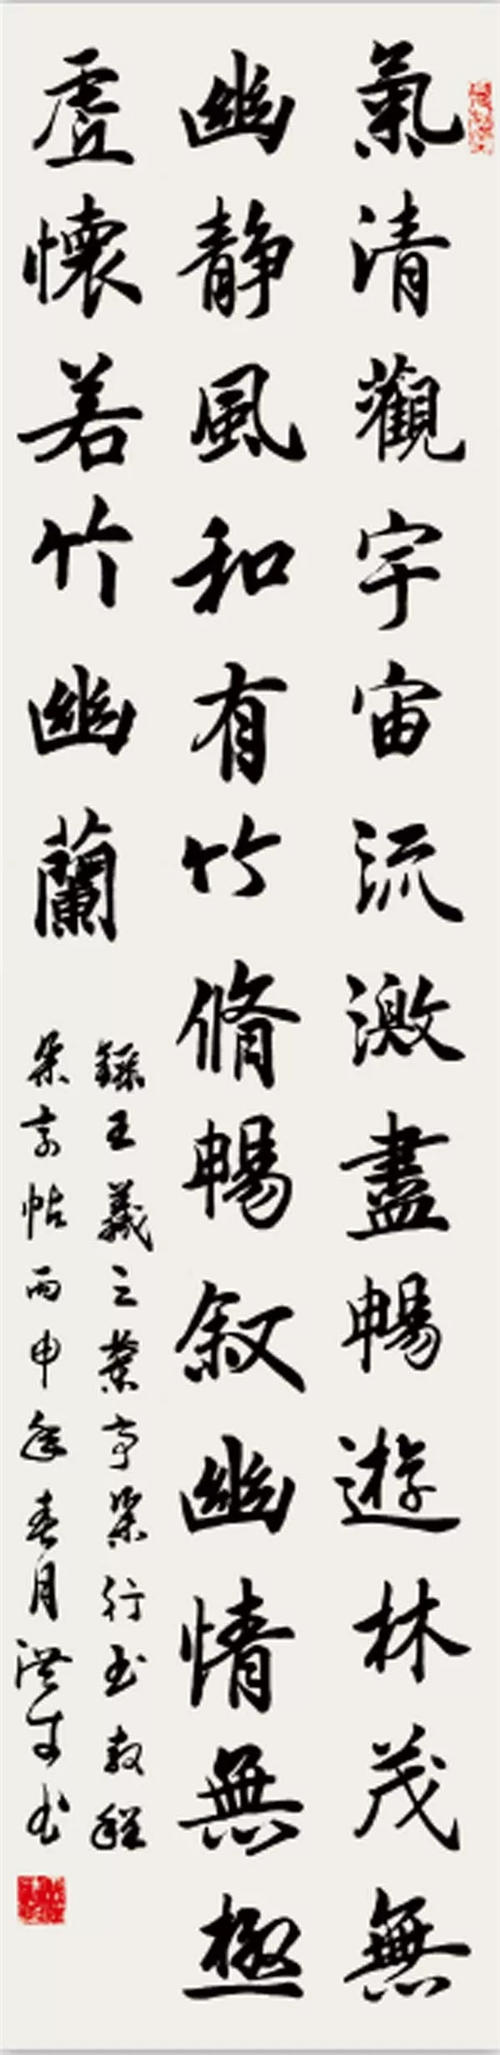 氣清觀宇宙流激盡暢遊林茂無
幽靜風和有竹脩暢叙幽情無極
虛懷若竹幽蘭
錄王羲之蘭亭集行書教程
集字帖丙申年春月洪 書